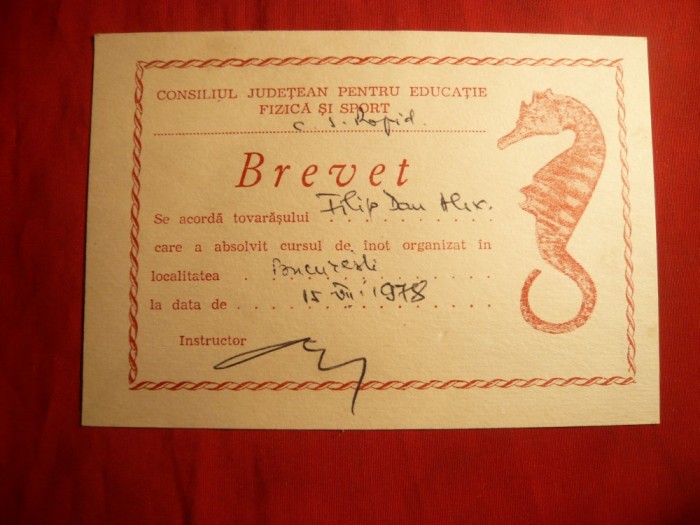 CONSILIUL JUDEȚEAN PENTRU EDUCAȚIE
FIZICĂ ȘI SPORT
C. S. Rapid.
Brevet
Se acordă tovarășului Filip Dan Alex.
care a absolvit cursul de înot organizat în
localitatea București
la data de 15 VII. 1978
Instructor